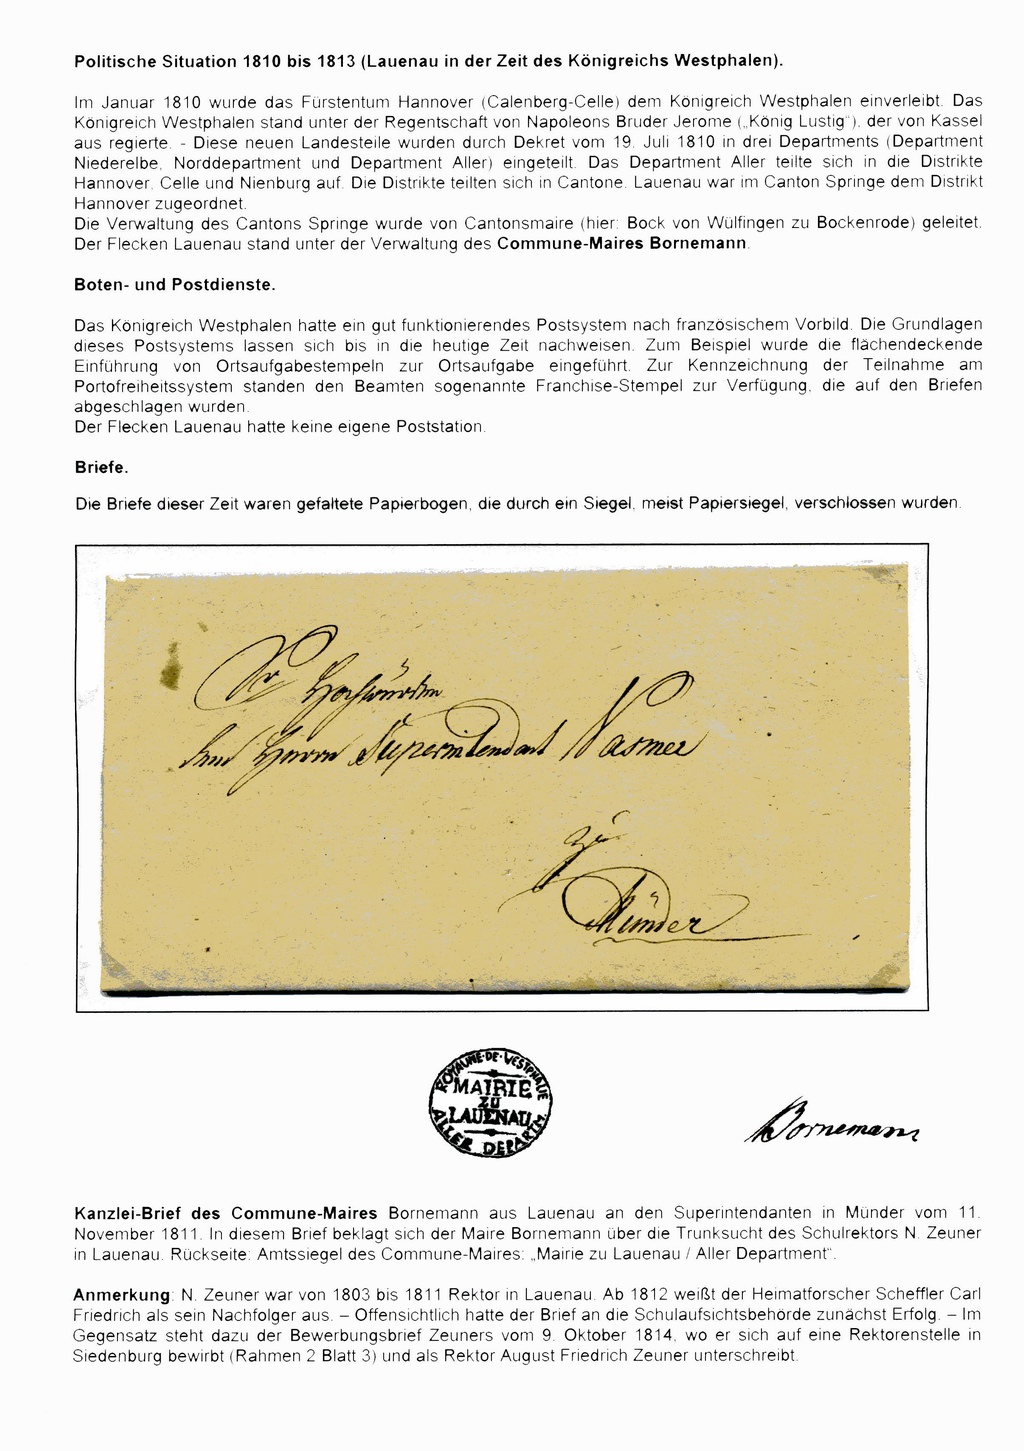 Politische Situation 1810 bis 1813 (Lauenau in der Zeit des Königreichs Westphalen).
Im Januar 1810 wurde das Fürstentum Hannover (Calenberg-Celle) dem Königreich Westphalen einverleibt. Das
Königreich Westphalen stand unter der Regentschaft von Napoleons Bruder Jerome („König Lustig"), der von Kassel
aus regierte. - Diese neuen Landesteile wurden durch Dekret vom 19. Juli 1810 in drei Departments (Department
Niederelbe, Norddepartment und Department Aller) eingeteilt. Das Department Aller teilte sich in die Distrikte
Hannover, Celle und Nienburg auf. Die Distrikte teilten sich in Cantone. Lauenau war im Canton Springe dem Distrikt
Hannover zugeordnet.
Die Verwaltung des Cantons Springe wurde von Cantonsmaire (hier: Bock von Wülfingen zu Bockenrode) geleitet.
Der Flecken Lauenau stand unter der Verwaltung des Commune-Maires Bornemann.
Boten- und Postdienste.
Das Königreich Westphalen hatte ein gut funktionierendes Postsystem nach französischem Vorbild. Die Grundlagen
dieses Postsystems lassen sich bis in die heutige Zeit nachweisen. Zum Beispiel wurde die flächendeckende
Einführung von Ortsaufgabestempeln zur Ortsaufgabe eingeführt. Zur Kennzeichnung der Teilnahme am
Portofreiheitssystem standen den Beamten sogenannte Franchise-Stempel zur Verfügung, die auf den Briefen
abgeschlagen wurden.
Der Flecken Lauenau hatte keine eigene Poststation.
Briefe.
Die Briefe dieser Zeit waren gefaltete Papierbogen, die durch ein Siegel, meist Papiersiegel, verschlossen wurden.
Sr Hochwürden
dem Herrn Superintendent Vasmer
zu
Münder
ROYAUME·DE·WESTPHALIE
MAIRIE
ZU
LAUENAU
ALLER DEPARTM.
Bornemann
Kanzlei-Brief des Commune-Maires Bornemann aus Lauenau an den Superintendanten in Münder vom 11.
November 1811. In diesem Brief beklagt sich der Maire Bornemann über die Trunksucht des Schulrektors N. Zeuner
in Lauenau. Rückseite: Amtssiegel des Commune-Maires: „Mairie zu Lauenau / Aller Department".
Anmerkung: N. Zeuner war von 1803 bis 1811 Rektor in Lauenau. Ab 1812 weißt der Heimatforscher Scheffler Carl
Friedrich als sein Nachfolger aus. – Offensichtlich hatte der Brief an die Schulaufsichtsbehörde zunächst Erfolg. – Im
Gegensatz steht dazu der Bewerbungsbrief Zeuners vom 9. Oktober 1814, wo er sich auf eine Rektorenstelle in
Siedenburg bewirbt (Rahmen 2 Blatt 3) und als Rektor August Friedrich Zeuner unterschreibt.